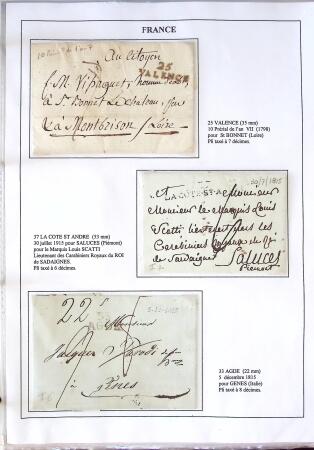 FRANCE
10 Prairial de l'an 7
au Citoyen
25
VALENCE
à St. Bonnet Le Chateau
à Montbrison Loire
25 VALENCE (35 mm)
10 Prérial de l'an VII (1798)
pour St BONNET (Loire)
Pli taxé à 7 décimes.
30/7/1815
LA COTE-ST-A
Monsieur
Monsieur le Marquis Louis
Scatti lieutenant dans les
Carabiniers Royaux
de Sardaigne
Saluces
Piemont
37 LA COTE ST ANDRE (53 mm)
30 juillet 1915 pour SALUCES (Piémont)
pour le Marquis Louis SCATTI
Lieutenant des Carabiniers Royaux du ROI
de SADAIGNES.
Pli taxé à 6 décimes.
AGDE
Monsieur
Gênes
33 AGDE (22 mm)
5 décembre 1815
pour GENES (Italie)
Pli taxé à 8 décimes.